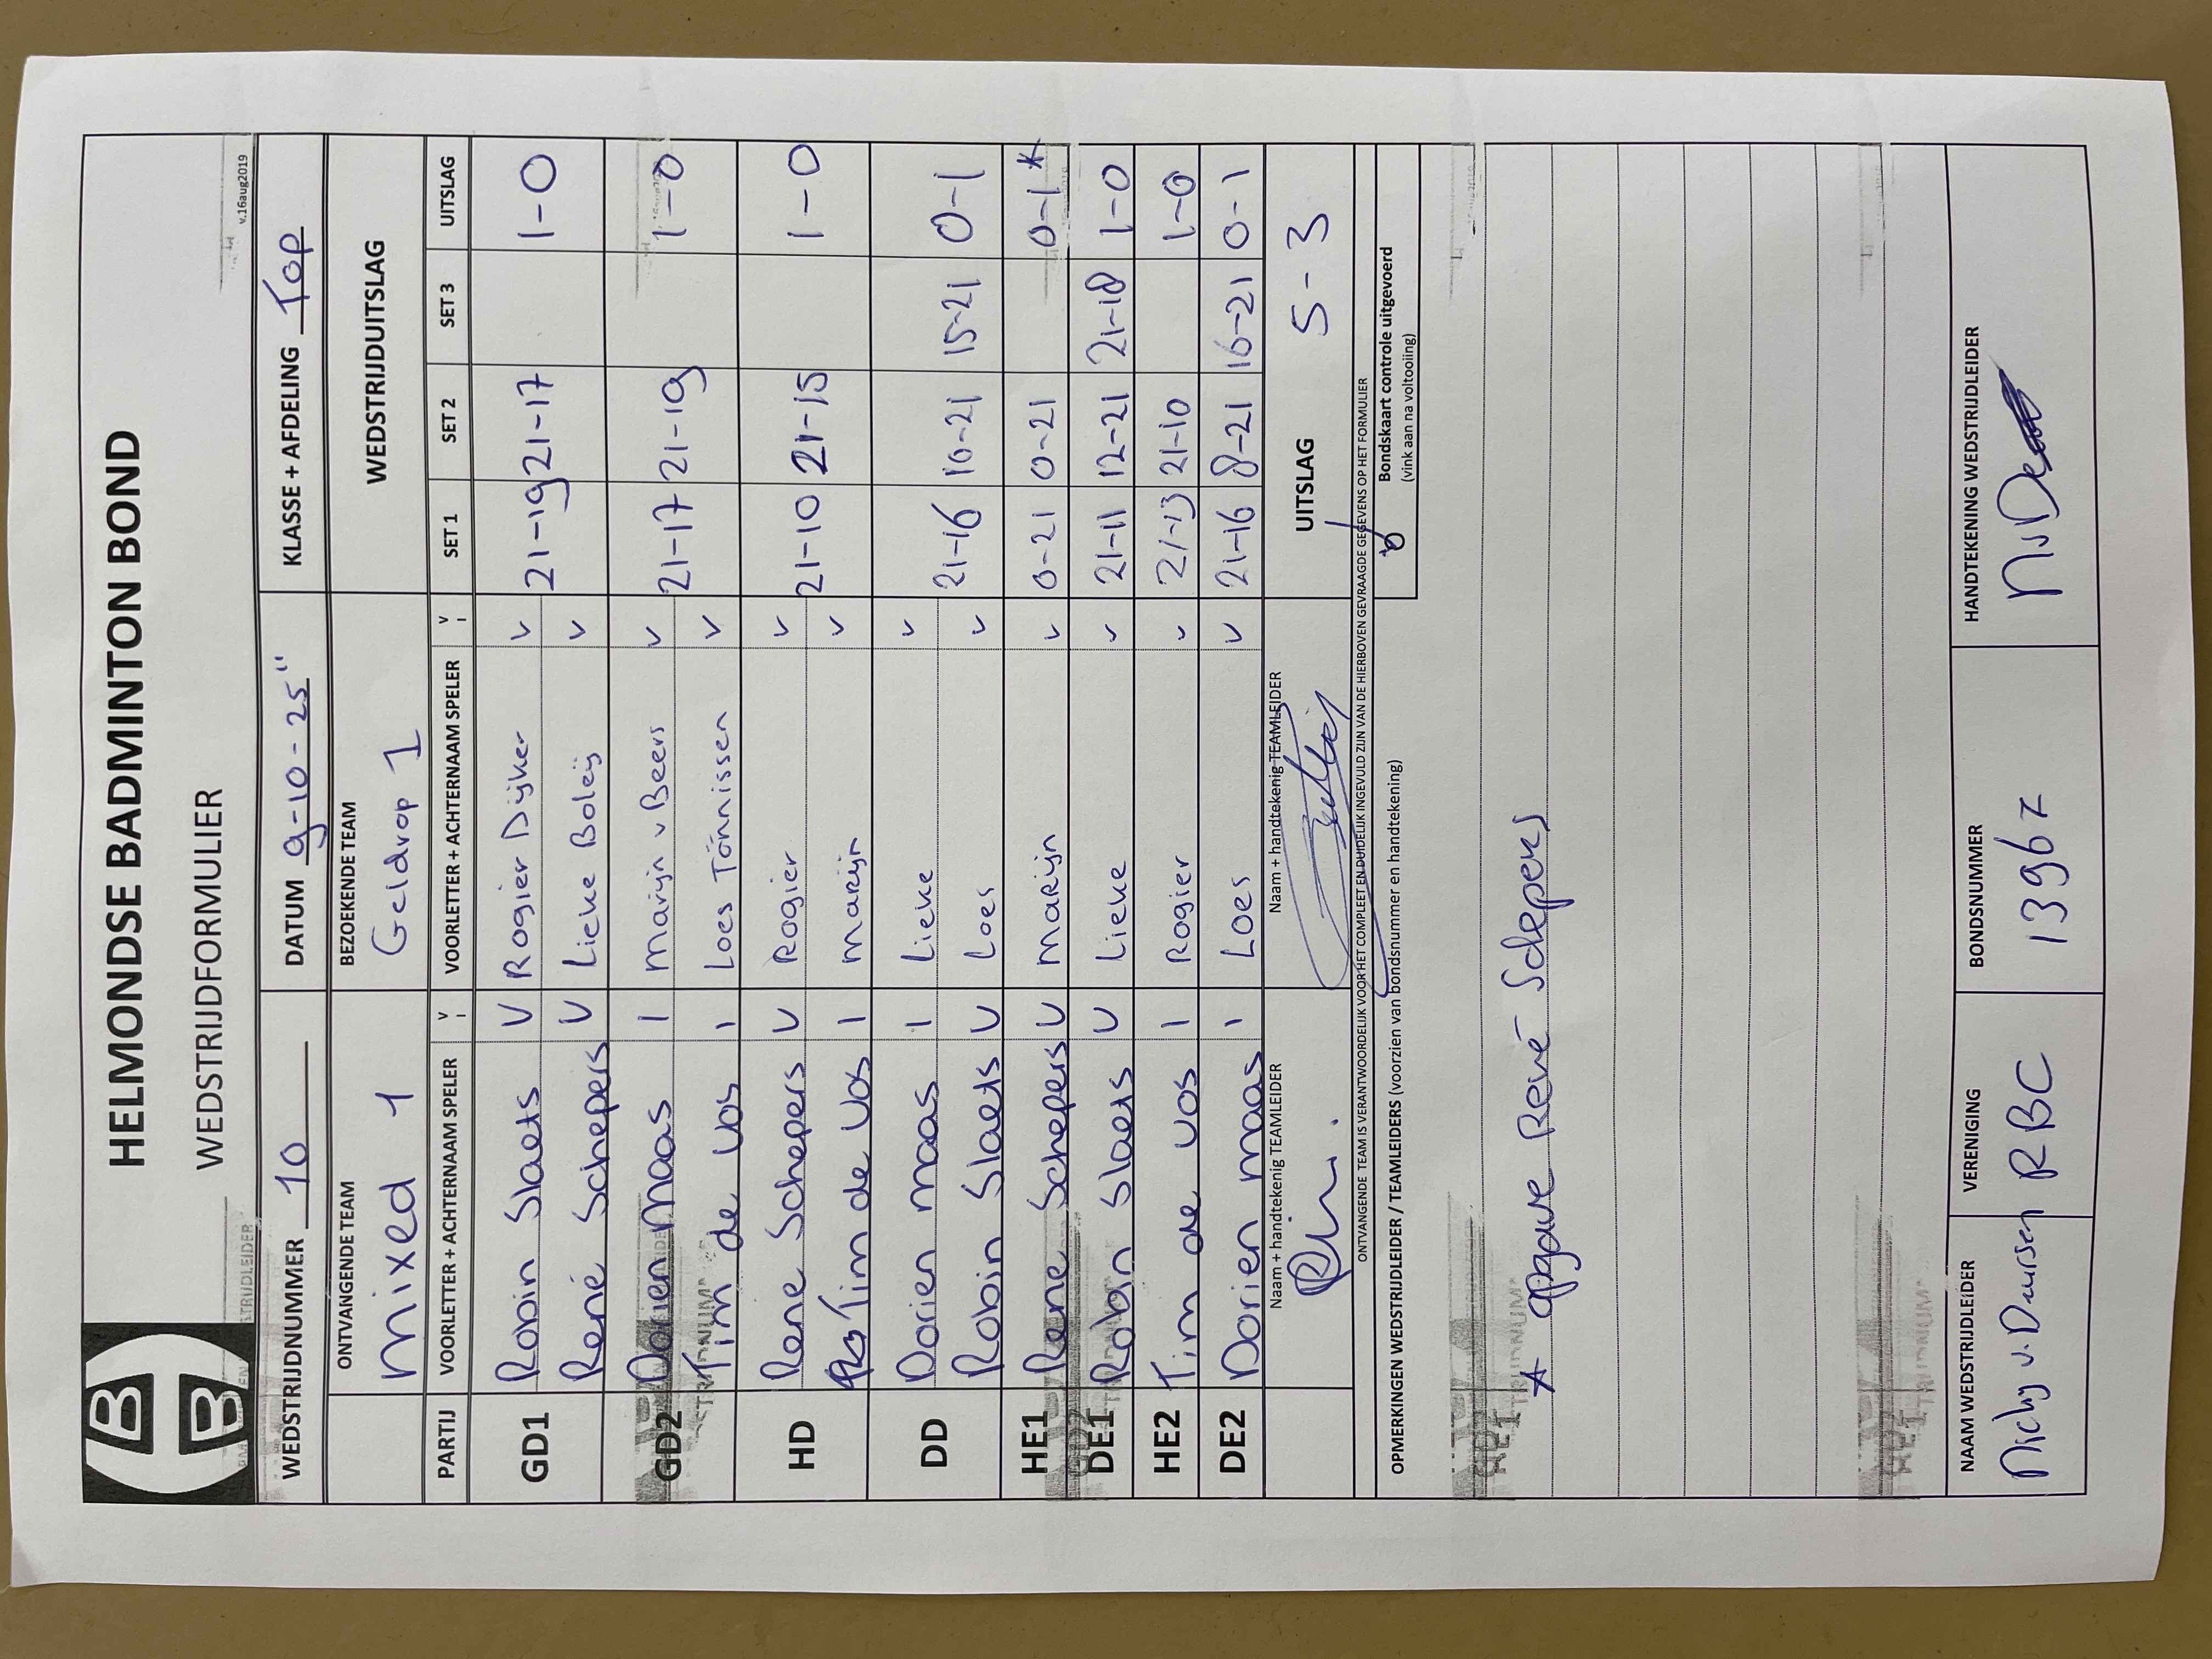 HELMONDSE BADMINTON BOND
WEDSTRIJDFORMULIER
v.16aug2019
WEDSTRIJDNUMMER 10 DATUM 9-10-25" KLASSE + AFDELING Top
ONTVANGENDE TEAM BEZOEKENDE TEAM WEDSTRIJDUITSLAG
Mixed 1 Geldrop 1
PARTIJ VOORLETTER + ACHTERNAAM SPELER V I VOORLETTER + ACHTERNAAM SPELER V I SET 1 SET 2 SET 3 UITSLAG
GD1 Robin Slaets V Rogier Dijker V 21-19 21-17 1-0
René Schepers V Lieke Boleij V
GD2 Dorien Maas I Marijn v Beers V 21-17 21-19 1-0
Tim de Vos I Loes Tönnissen V
HD Rene Schepers V Rogier V 21-10 21-15 1-0
Tim de Vos I Marijn V
DD Dorien Maas I Lieke V 21-16 16-21 15-21 0-1
Robin Slaets V Loes V
HE1 Rene Schepers V Marijn V 0-21 0-21 0-1*
DE1 Robin Slaets V Lieke V 21-11 12-21 21-18 1-0
HE2 Tim de Vos I Rogier V 21-13 21-10 1-0
DE2 Dorien Maas I Loes V 21-16 8-21 16-21 0-1
Naam + handtekenig TEAMLEIDER Naam + handtekenig TEAMLEIDER UITSLAG 5-3
ONTVANGENDE TEAM IS VERANTWOORDELIJK VOOR HET COMPLEET EN DUIDELIJK INGEVULD ZIJN VAN DE HIERBOVEN GEVRAAGDE GEGEVENS OP HET FORMULIER
OPMERKINGEN WEDSTRIJDLEIDER / TEAMLEIDERS (voorzien van bondsnummer en handtekening) Bondskaart controle uitgevoerd
(vink aan na voltooiing)
* opgave René Schepers
NAAM WEDSTRIJDLEIDER VERENIGING BONDSNUMMER HANDTEKENING WEDSTRIJDLEIDER
Nicky v. Deursen RBC 13967